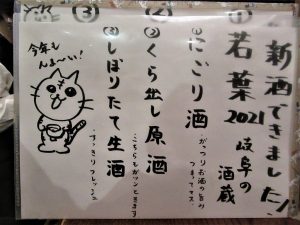 新酒できました!
若葉2021
岐阜の
酒蔵
①にごり酒
・がっつりお酒の旨の
つまってマス。
②くら出し原酒
・こちらもガツンときます
③しぼりたて生酒
・すっきりフレッシュ
今年も